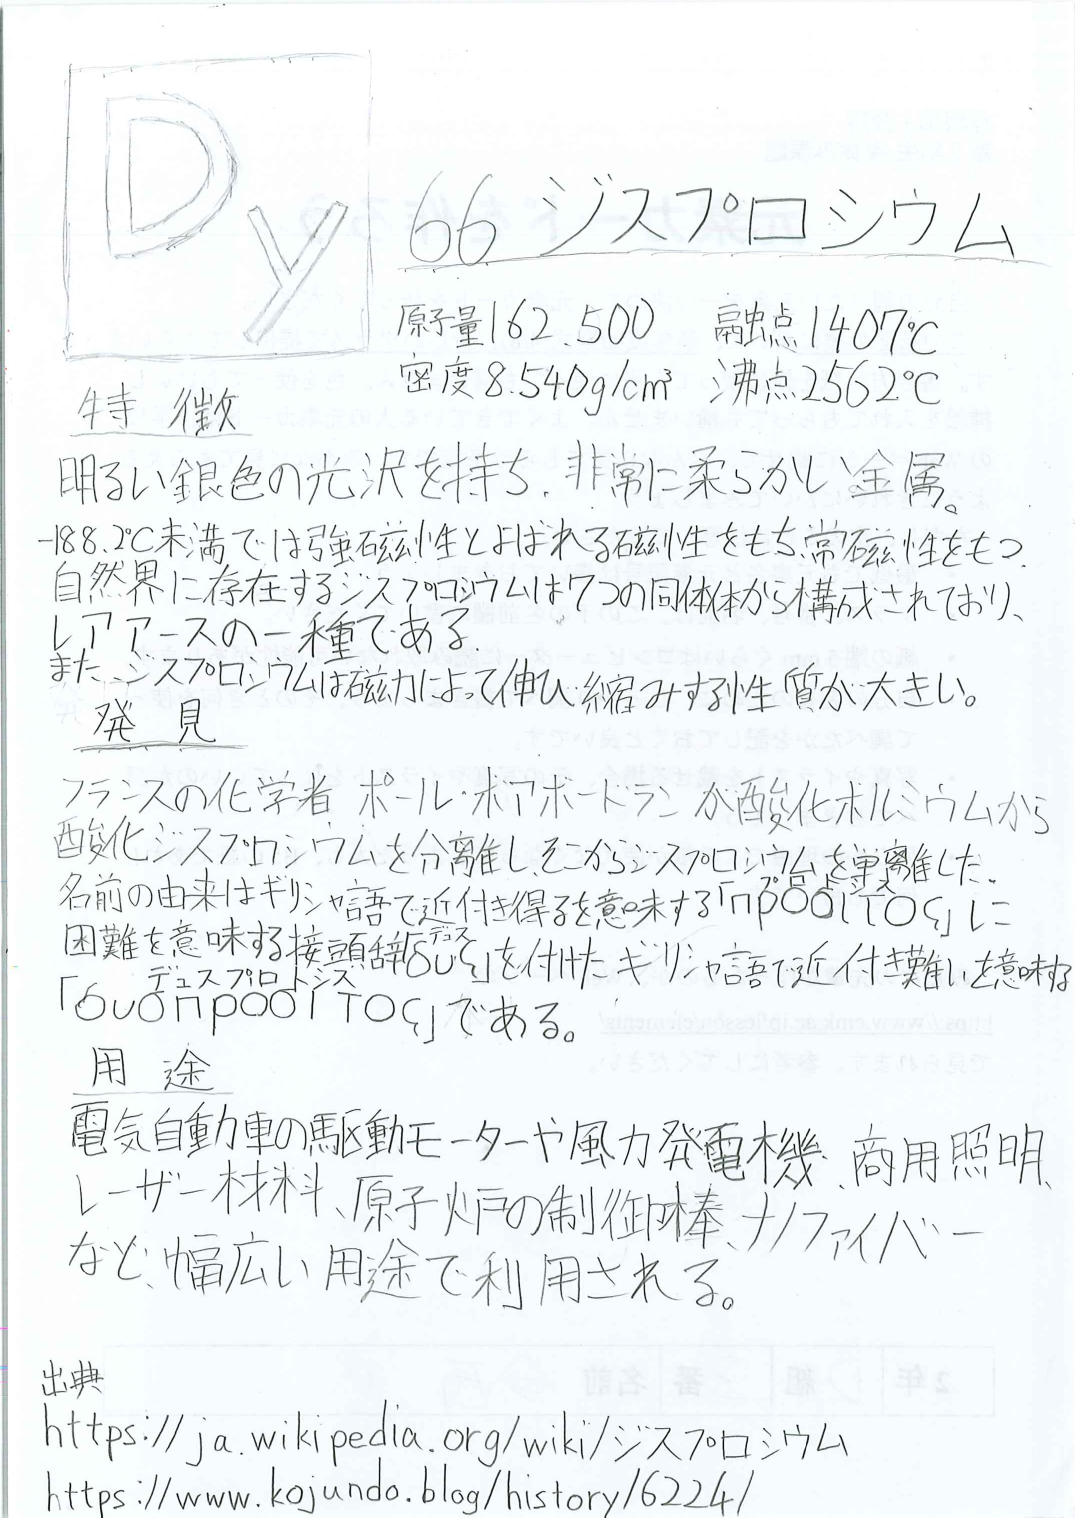 Dy
66 ジスプロシウム
原子量162.500 融点1407℃
密度8.540g/cm³ 沸点2562℃
特 徴
明るい銀色の光沢を持ち、非常に柔らかい金属。
-188.2℃未満では強磁性とよばれる磁性をもち、常磁性をもつ
自然界に存在するジスプロシウムは7つの同体体から構成されており、
レアアースの一種である
また、ジスプロシウムは磁力によって伸び縮みする性質が大きい。
発 見
フランスの化学者 ポール・ボアボードランが酸化ホルミウムから
酸化ジスプロシウムを分離し、そこからジスプロシウムを単離した。
名前の由来はギリシャ語で近付き得るを意味する「προσιτος」に
困難を意味する接頭辞「δυς」を付けた ギリシャ語で近付き難しを意味する
デュス
デュスプロトシス
「δυσπροσιτος」である。
用 途
電気自動車の駆動モーターや風力発電機、商用照明、
レーザー材料、原子炉の制御棒、ナノファイバー
など、幅広い用途で利用される。
出典
https://ja.wikipedia.org/wiki/ジスプロシウム
https://www.kojundo.blog/history/6224/